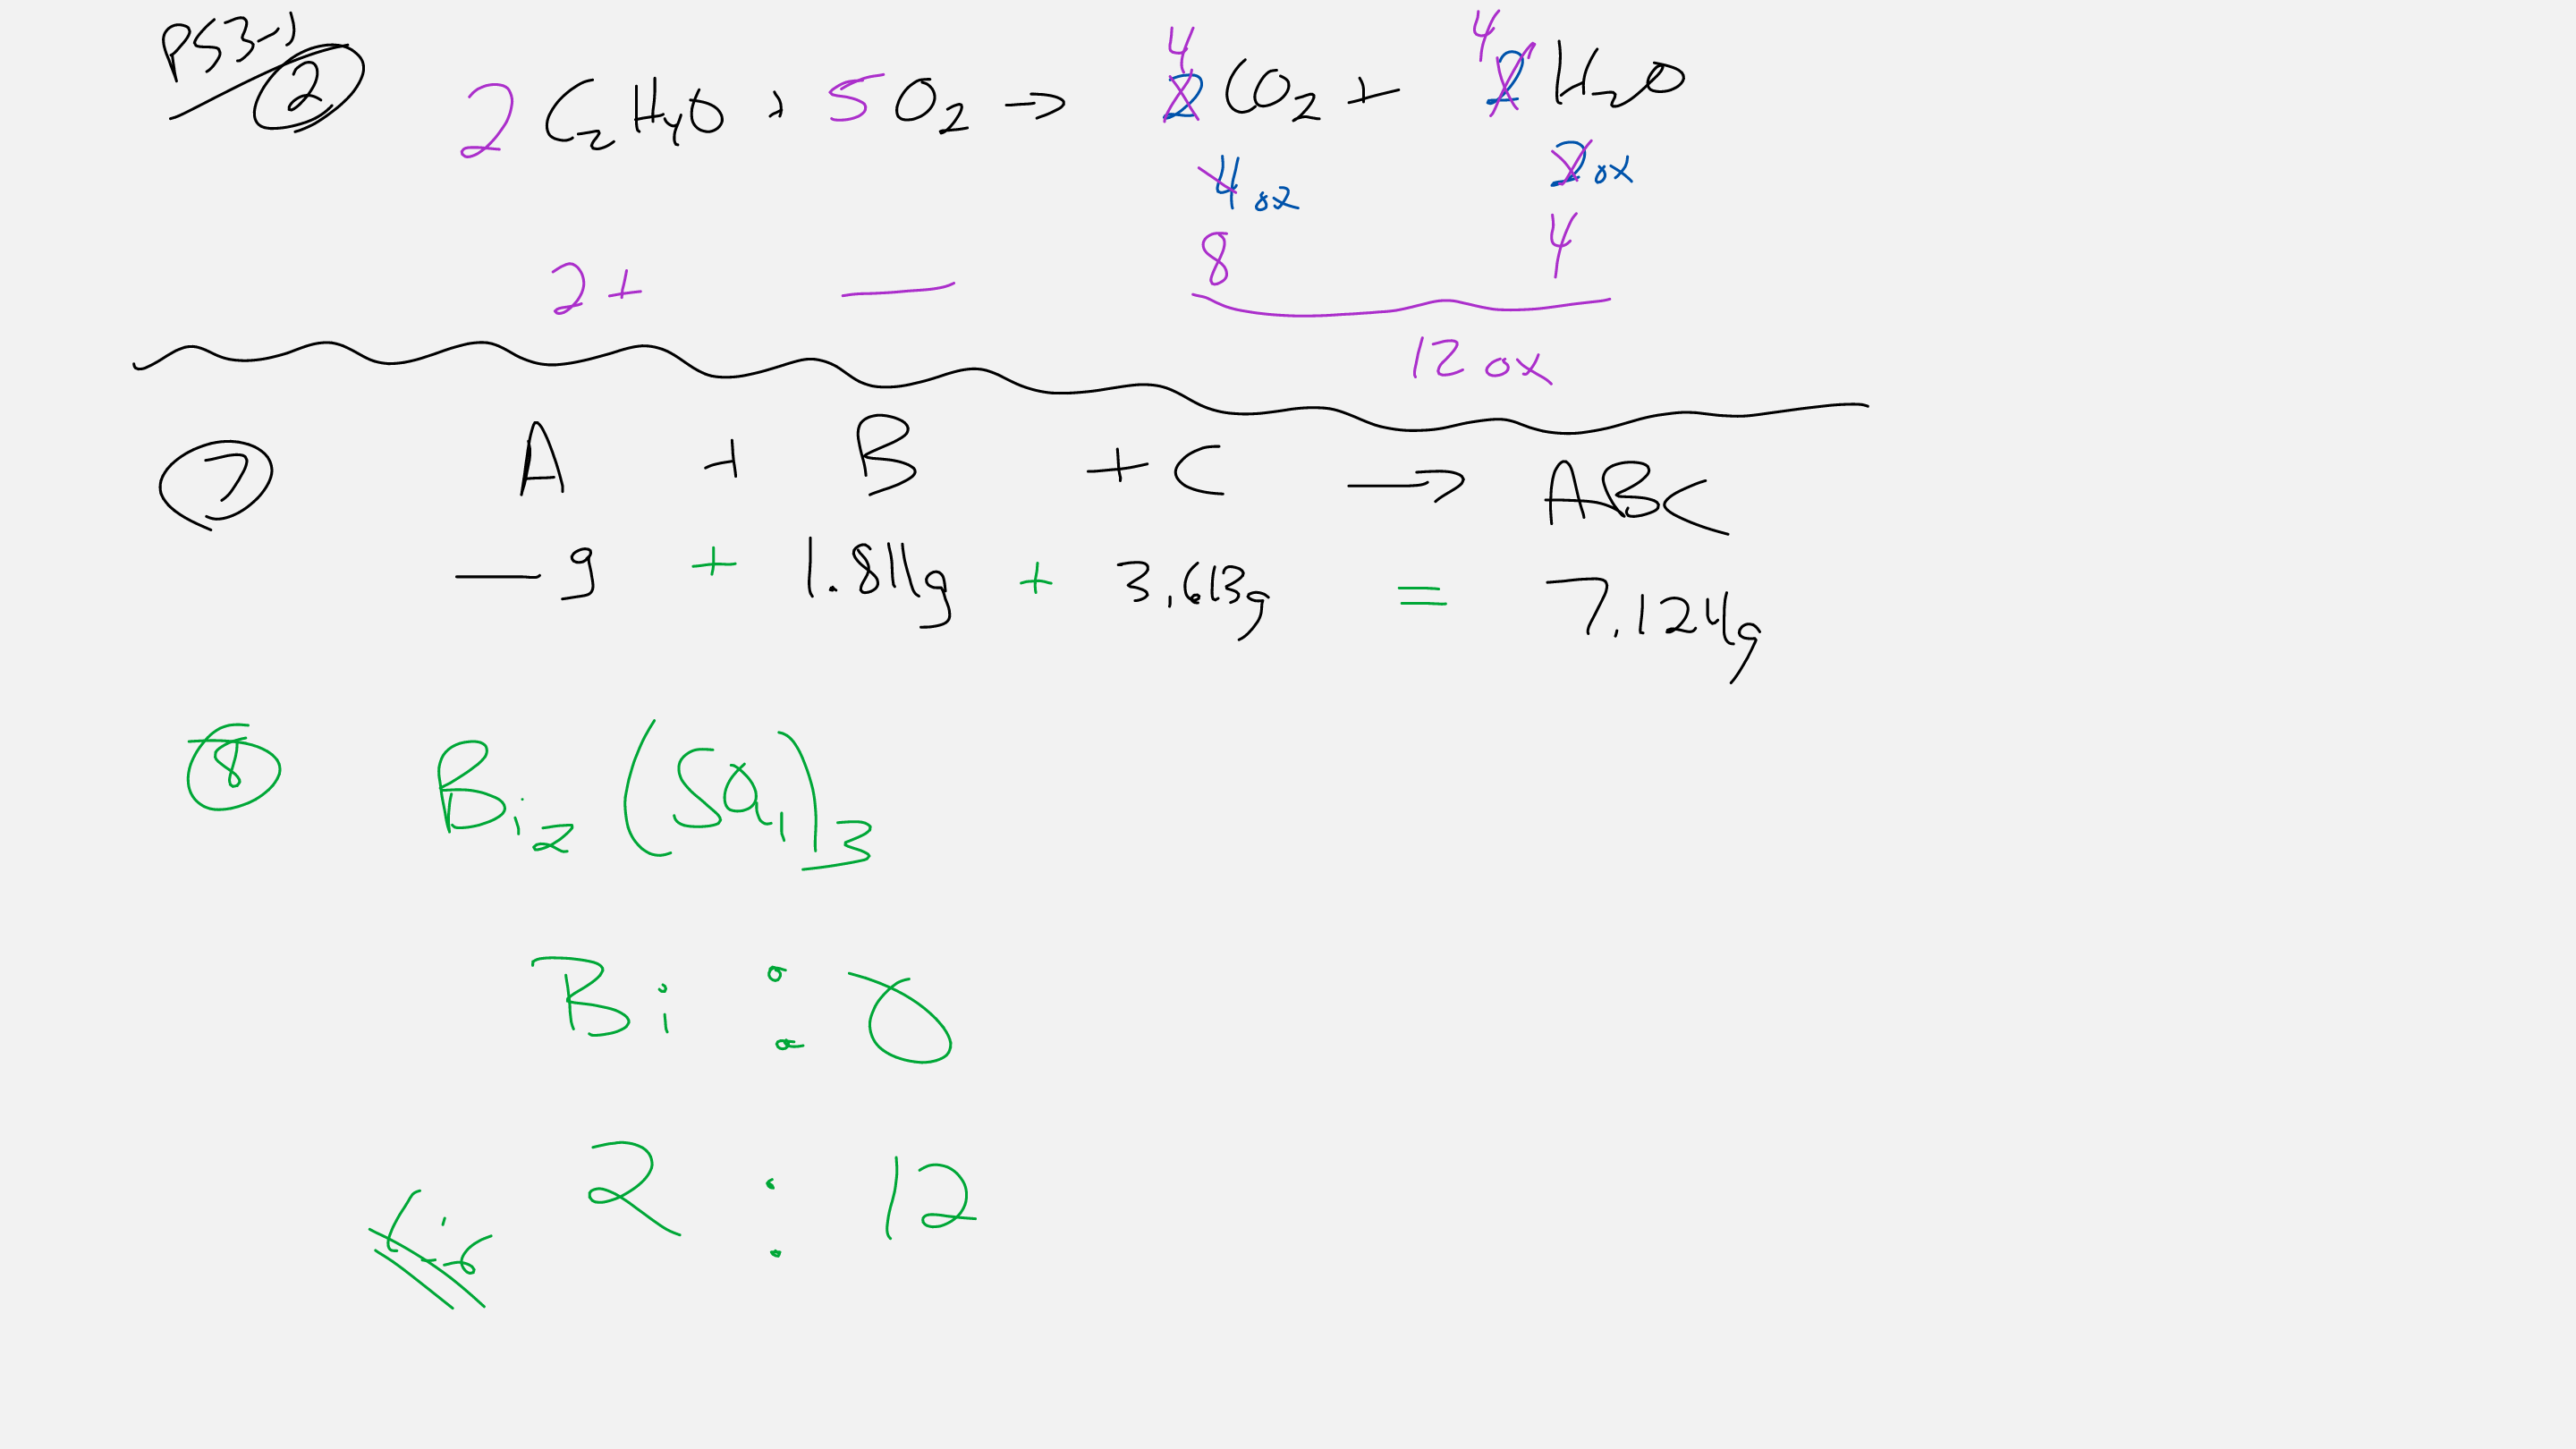 PS3-1
② 2 C₂H₄O + 5 O₂ → 4 2 CO₂ + 4 2 H₂O
4 ox 2 ox
8 4
2 + __ 12 ox
⑦ A + B + C → ABC
__ g + 1.811g + 3.613g = 7.124g
⑧ Bi₂(SO₄)₃
Bi : O
2 : 12
1:6